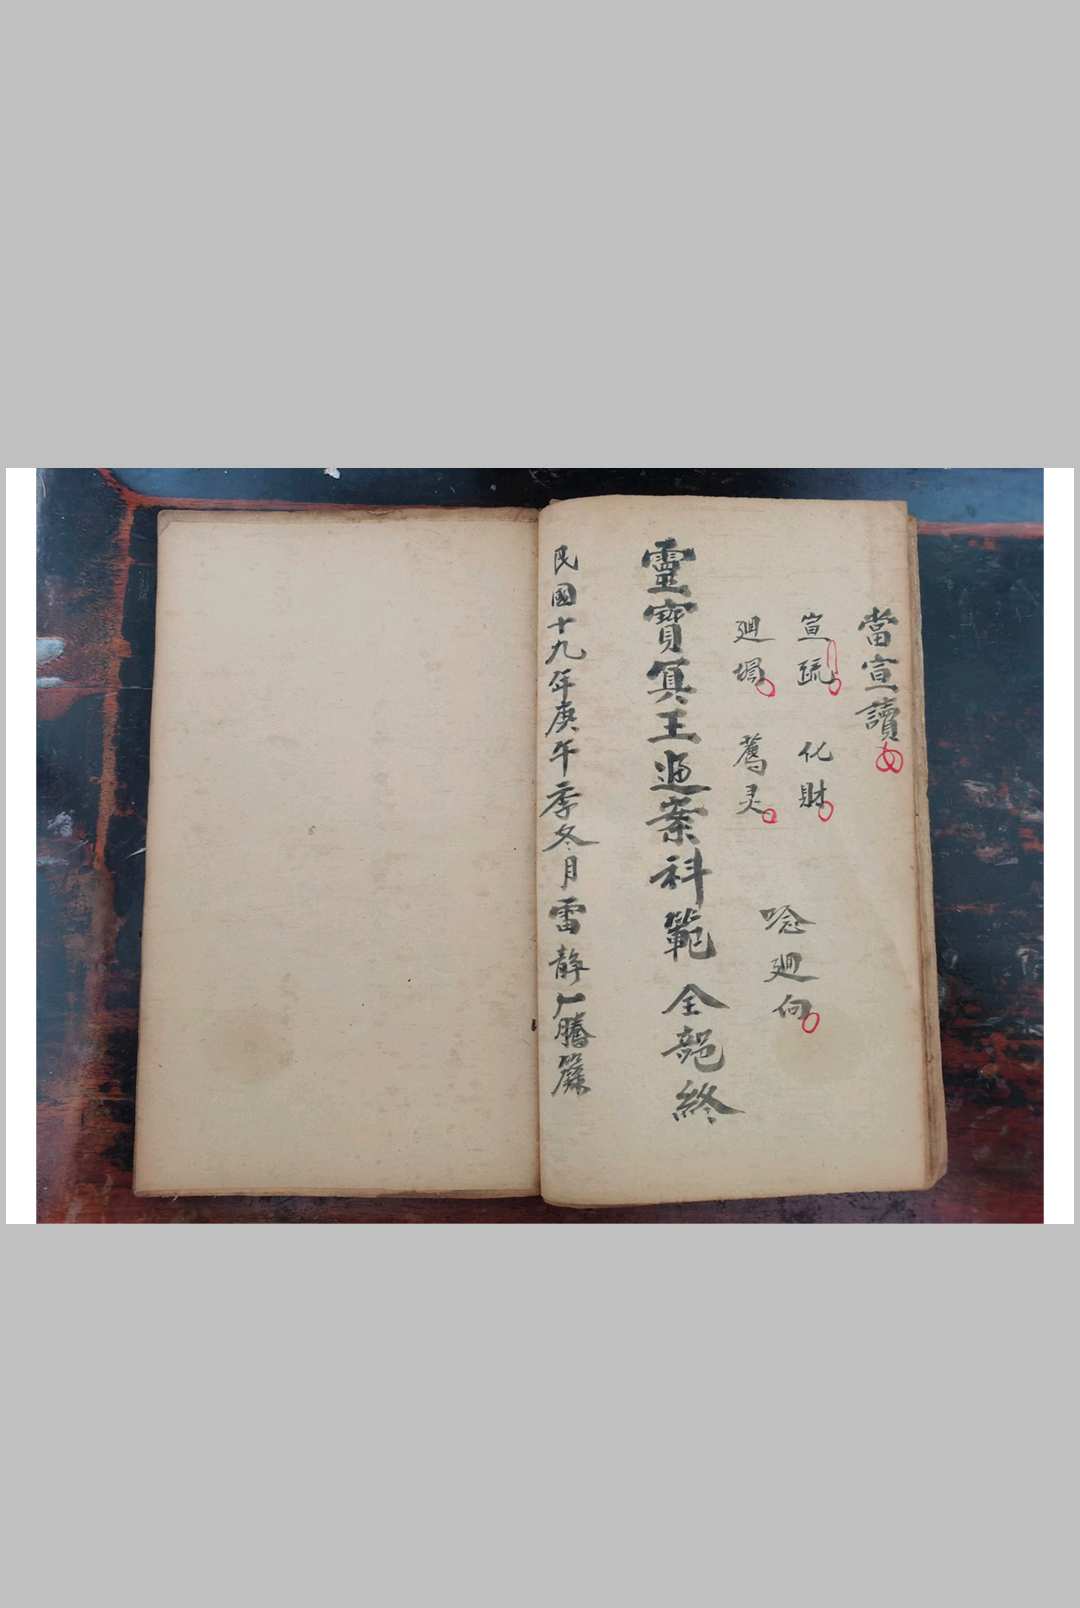 當宣讀
宣疏 化財
廻壇 薦灵 唸廻向
靈寶冥王過案科範 全部終
民國十九年庚午季冬月雷静仁騰籙